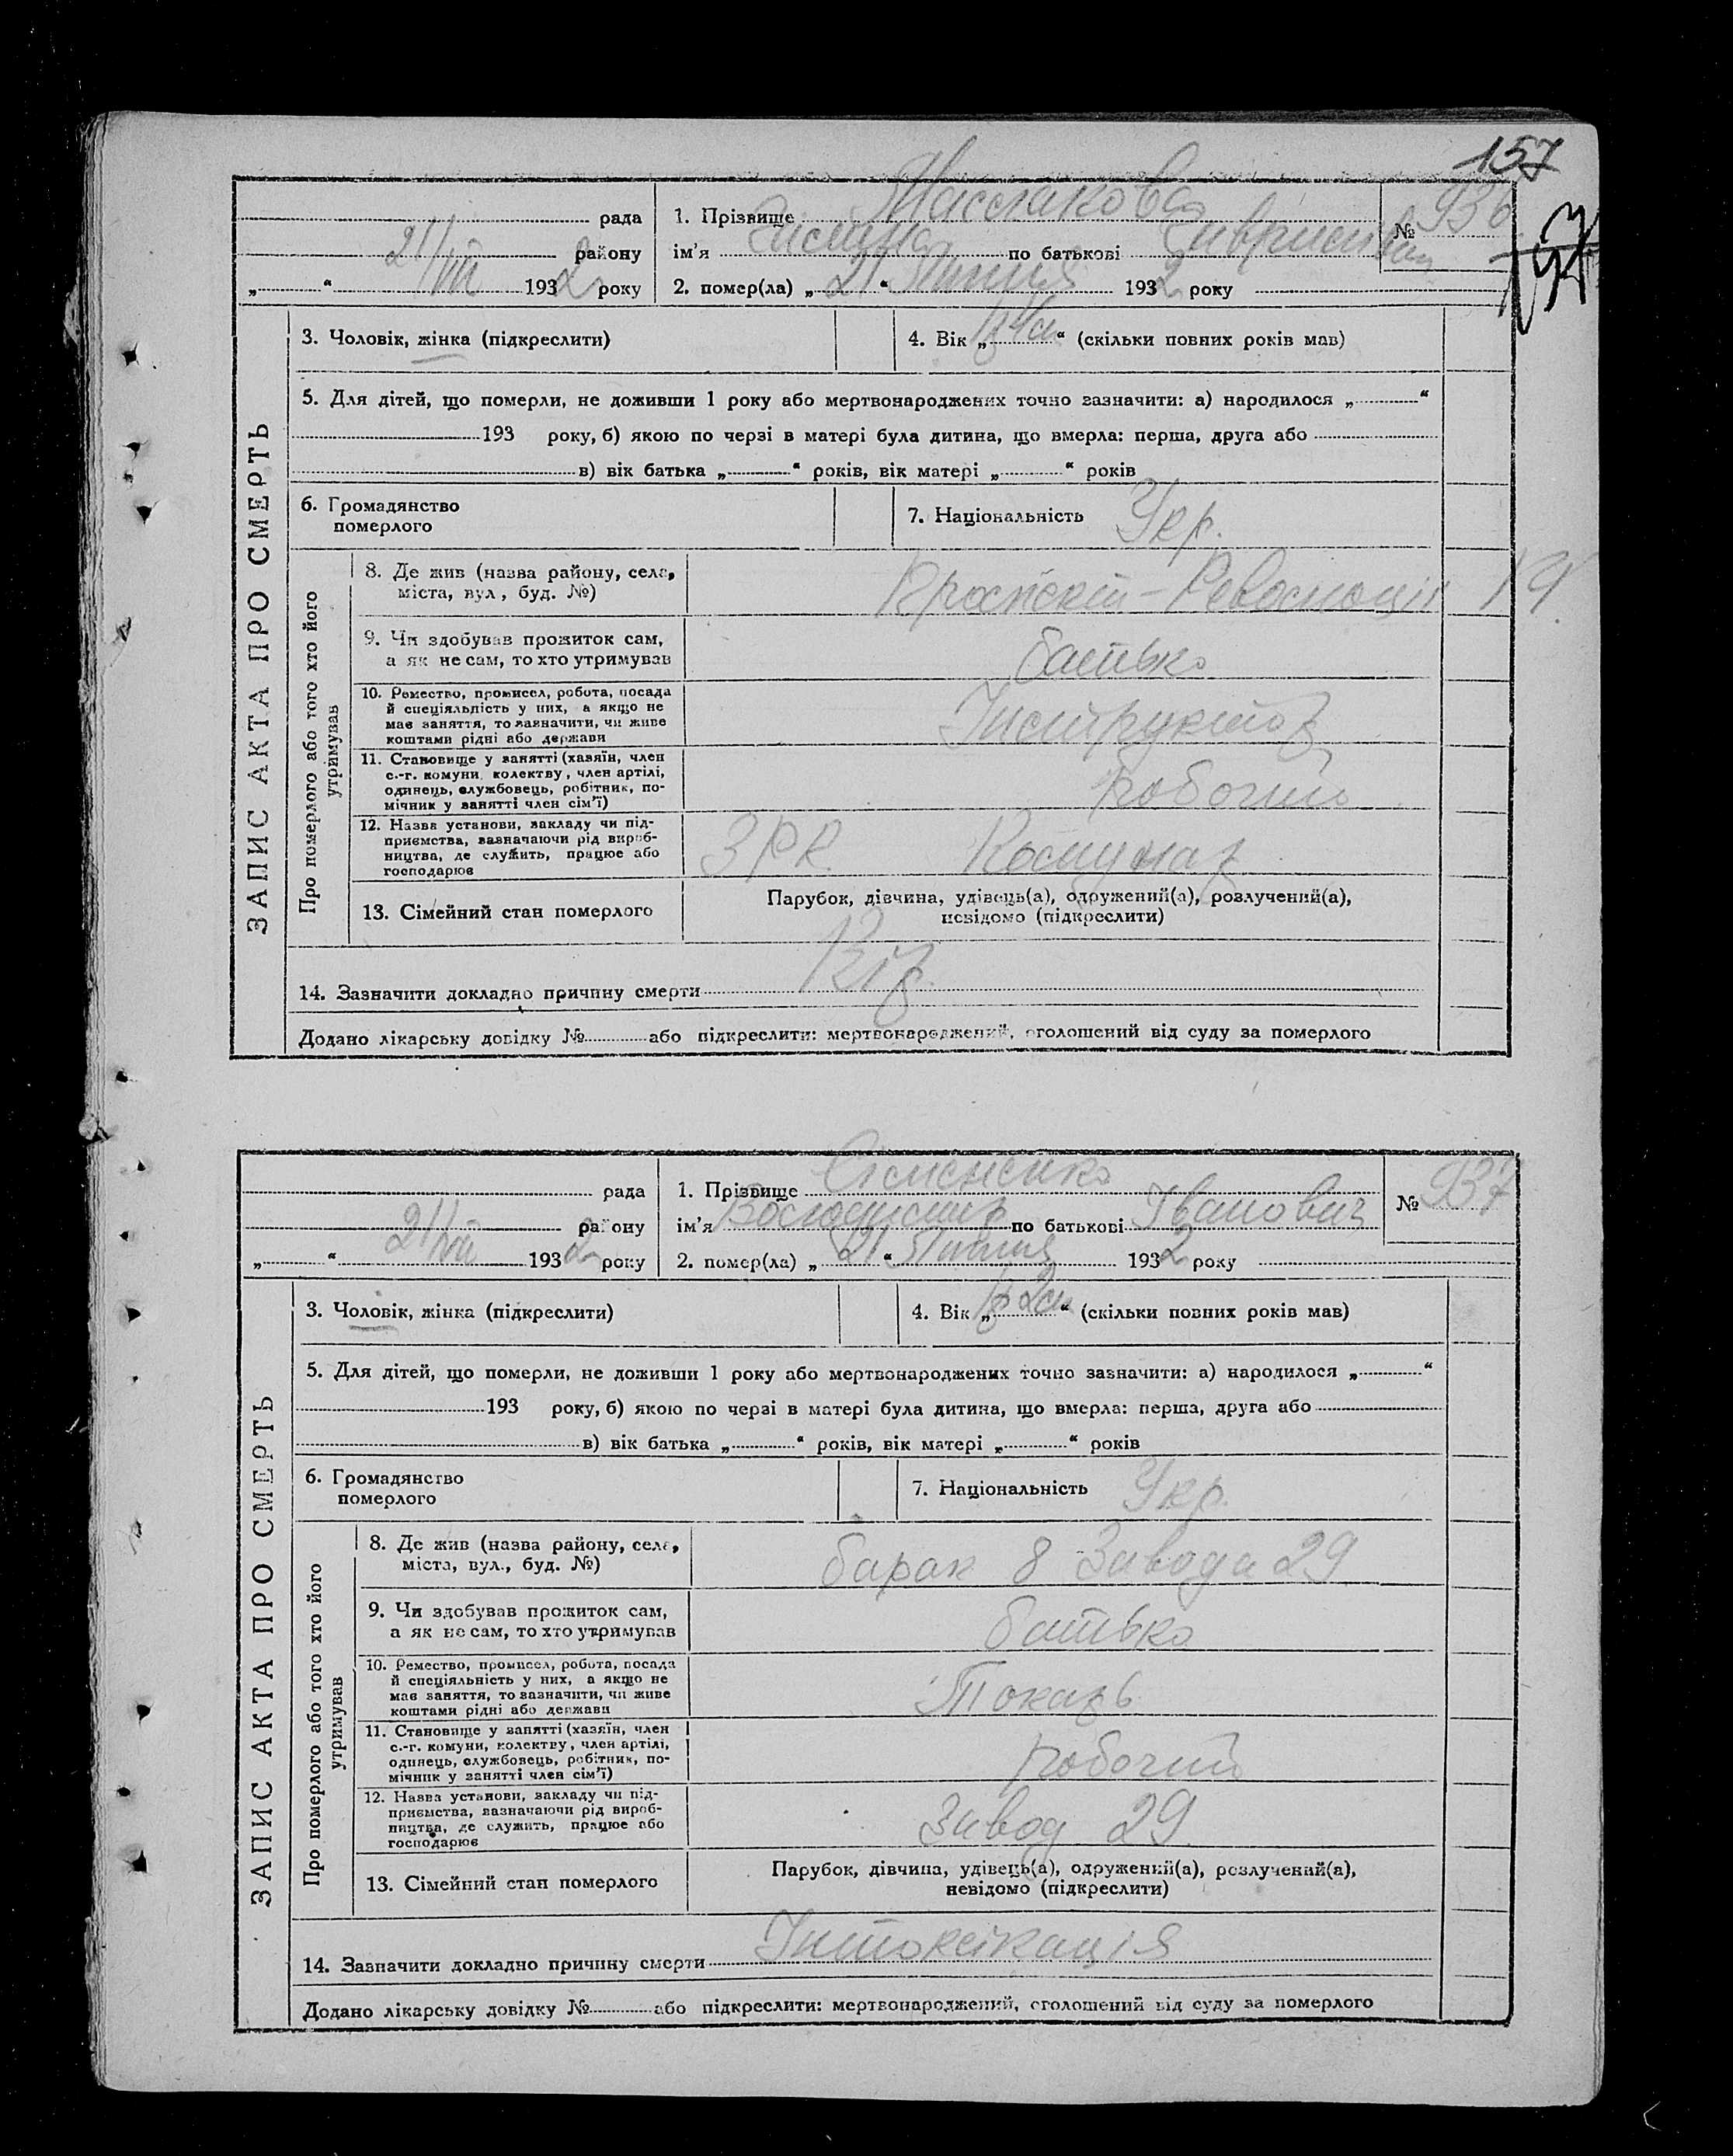 157
рада
району
21/VII 1932 року
1. Прізвище Маслакова
ім'я по батькові
2. помер(ла) „21“ Липня 1932 року
№ 936
ЗАПИС АКТА ПРО СМЕРТЬ
3. Чоловік, жінка (підкреслити)
4. Вік „1р 4м“ (скільки повних років мав)
5. Для дітей, що померли, не доживши 1 року або мертвонароджених точно зазначити: а) народилося „ “
193 року, б) якою по черзі в матері була дитина, що вмерла: перша, друга або
в) вік батька „ “ років, вік матері „ “ років
6. Громадянство
померлого
7. Національність Укр.
Про померлого або того хто його
утримував
8. Де жив (назва району, села,
міста, вул, буд. №)
Проспект-Революції 19
9. Чи здобував прожиток сам,
а як не сам, то хто утримував
батько
10. Ремество, промисел, робота, посада
й спеціяльність у них, а якщо не
має заняття, то зазначити, чи живе
коштами рідні або держави
Інструктор
11. Становище у занятті (хазяїн, член
с.-г. комуни, колективу, член артілі,
одинець, службовець, робітник, по-
мічник у занятті член сім'ї)
робочий
12. Назва установи, закладу чи під-
приємства, зазначаючи рід вироб-
ництва, де служить, працює або
господарює
ЗРК Комунар
13. Сімейний стан померлого
Парубок, дівчина, удівець(а), одружений(а), розлучений(а),
невідомо (підкреслити)
14. Зазначити докладно причину смерти Кір
Додано лікарську довідку № або підкреслити: мертвонароджений, оголошений від суду за померлого
рада
району
21/VII 1932 року
1. Прізвище
ім'я Володимир по батькові Іванович
2. помер(ла) „21“ Липня 1932 року
№ 937
ЗАПИС АКТА ПРО СМЕРТЬ
3. Чоловік, жінка (підкреслити)
4. Вік „1р 2м“ (скільки повних років мав)
5. Для дітей, що померли, не доживши 1 року або мертвонароджених точно зазначити: а) народилося „ “
193 року, б) якою по черзі в матері була дитина, що вмерла: перша, друга або
в) вік батька „ “ років, вік матері „ “ років
6. Громадянство
померлого
7. Національність Укр.
Про померлого або того хто його
утримував
8. Де жив (назва району, села,
міста, вул., буд. №)
барак 8 Завода 29
9. Чи здобував прожиток сам,
а як не сам, то хто утримував
батько
10. Ремество, промисел, робота, посада
й спеціяльність у них, а якщо не
має заняття, то зазначити, чи живе
коштами рідні або держави
Токарь
11. Становище у занятті (хазяїн, член
с.-г. комуни, колективу, член артілі,
одинець, службовець, робітник, по-
мічник у занятті член сім'ї)
робочий
12. Назва установи, закладу чи під-
приємства, зазначаючи рід вироб-
ництва, де служить, працює або
господарює
Завод 29
13. Сімейний стан померлого
Парубок, дівчина, удівець(а), одружений(а), розлучений(а),
невідомо (підкреслити)
14. Зазначити докладно причину смерти Інтоксікація
Додано лікарську довідку № або підкреслити: мертвонароджений, оголошений від суду за померлого